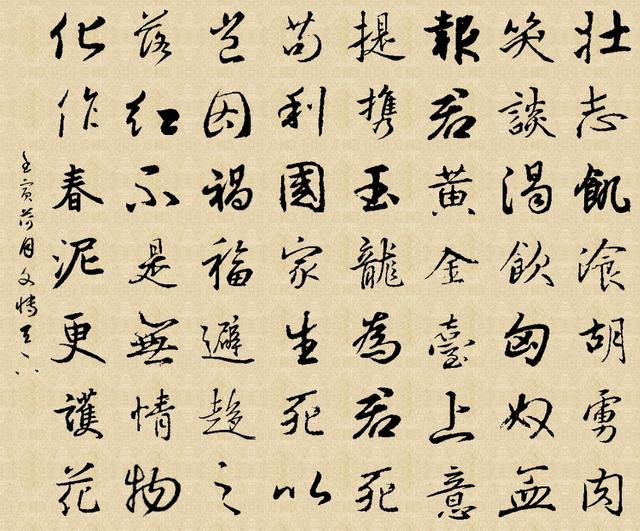 壮志飢湌胡虜肉
笑談渴飲匈奴血
報君黃金臺上意
提携玉龍為君死
苟利國家生死以
豈因禍福避趨之
落紅不是無情物
化作春泥更護花
壬寅荷月文